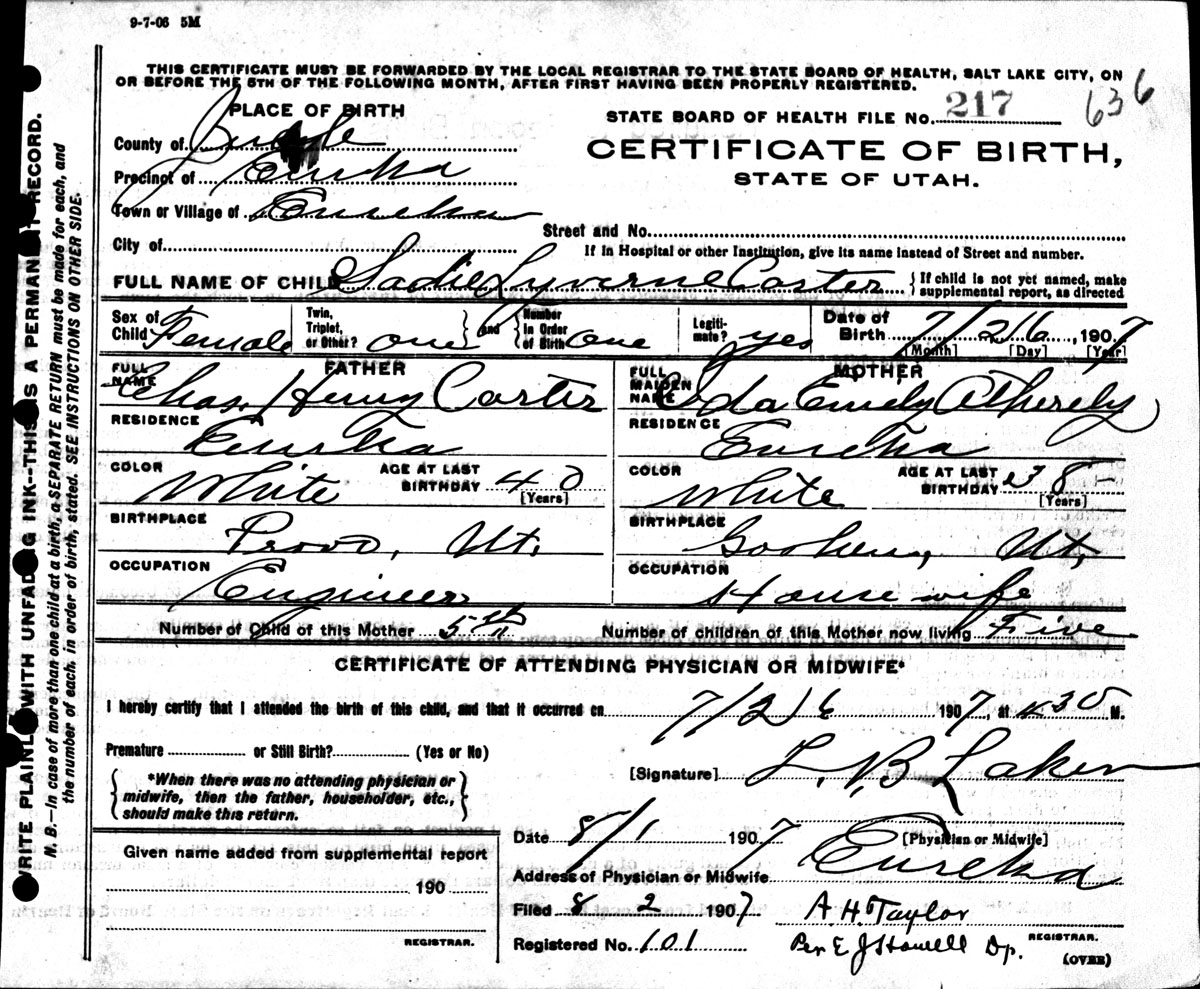 9-7-06 5M
THIS CERTIFICATE MUST BE FORWARDED BY THE LOCAL REGISTRAR TO THE STATE BOARD OF HEALTH, SALT LAKE CITY, ON
OR BEFORE THE 5TH OF THE FOLLOWING MONTH, AFTER FIRST HAVING BEEN PROPERLY REGISTERED.
PLACE OF BIRTH
STATE BOARD OF HEALTH FILE No. 217 636
County of
CERTIFICATE OF BIRTH,
STATE OF UTAH.
Precinct of Eureka
Town or Village of Eureka
Street and No.
City of
If in Hospital or other Institution, give its name instead of Street and number.
FULL NAME OF CHILD Sadie Lyverne Carter {If child is not yet named, make supplemental report, as directed
Sex of Child Female Twin, Triplet, or Other? one and Number in Order of Birth one Legitimate? yes Date of Birth 7/26, 1907
[Month] [Day] [Year]
FATHER
FULL NAME Chas. Henry Carter
RESIDENCE Eureka
COLOR White AGE AT LAST BIRTHDAY 40 [Years]
BIRTHPLACE Provo, Ut.
OCCUPATION Engineer
MOTHER
FULL MAIDEN NAME Emily
RESIDENCE Eureka
COLOR White AGE AT LAST BIRTHDAY 38 [Years]
BIRTHPLACE Goshen, Ut.
OCCUPATION House wife
Number of Child of this Mother 5th Number of children of this Mother now living Five
CERTIFICATE OF ATTENDING PHYSICIAN OR MIDWIFE*
I hereby certify that I attended the birth of this child, and that it occurred on 7/26 1907, at 30 M.
Premature or Still Birth? (Yes or No)
[Signature] L. B. Laker
*When there was no attending physician or
midwife, then the father, householder, etc.,
should make this return.
[Physician or Midwife]
Date 8/1 1907
Address of Physician or Midwife Eureka
Given name added from supplemental report
190
REGISTRAR.
Filed 8 2 1907 A. H. Taylor
REGISTRAR.
Registered No. 101 Per E J Howell Dp.
(OVER)
WRITE PLAINLY WITH UNFADING INK--THIS IS A PERMANENT RECORD.
N. B.—In case of more than one child at a birth, a SEPARATE RETURN must be made for each, and
the number of each, in order of birth, stated. SEE INSTRUCTIONS ON OTHER SIDE.